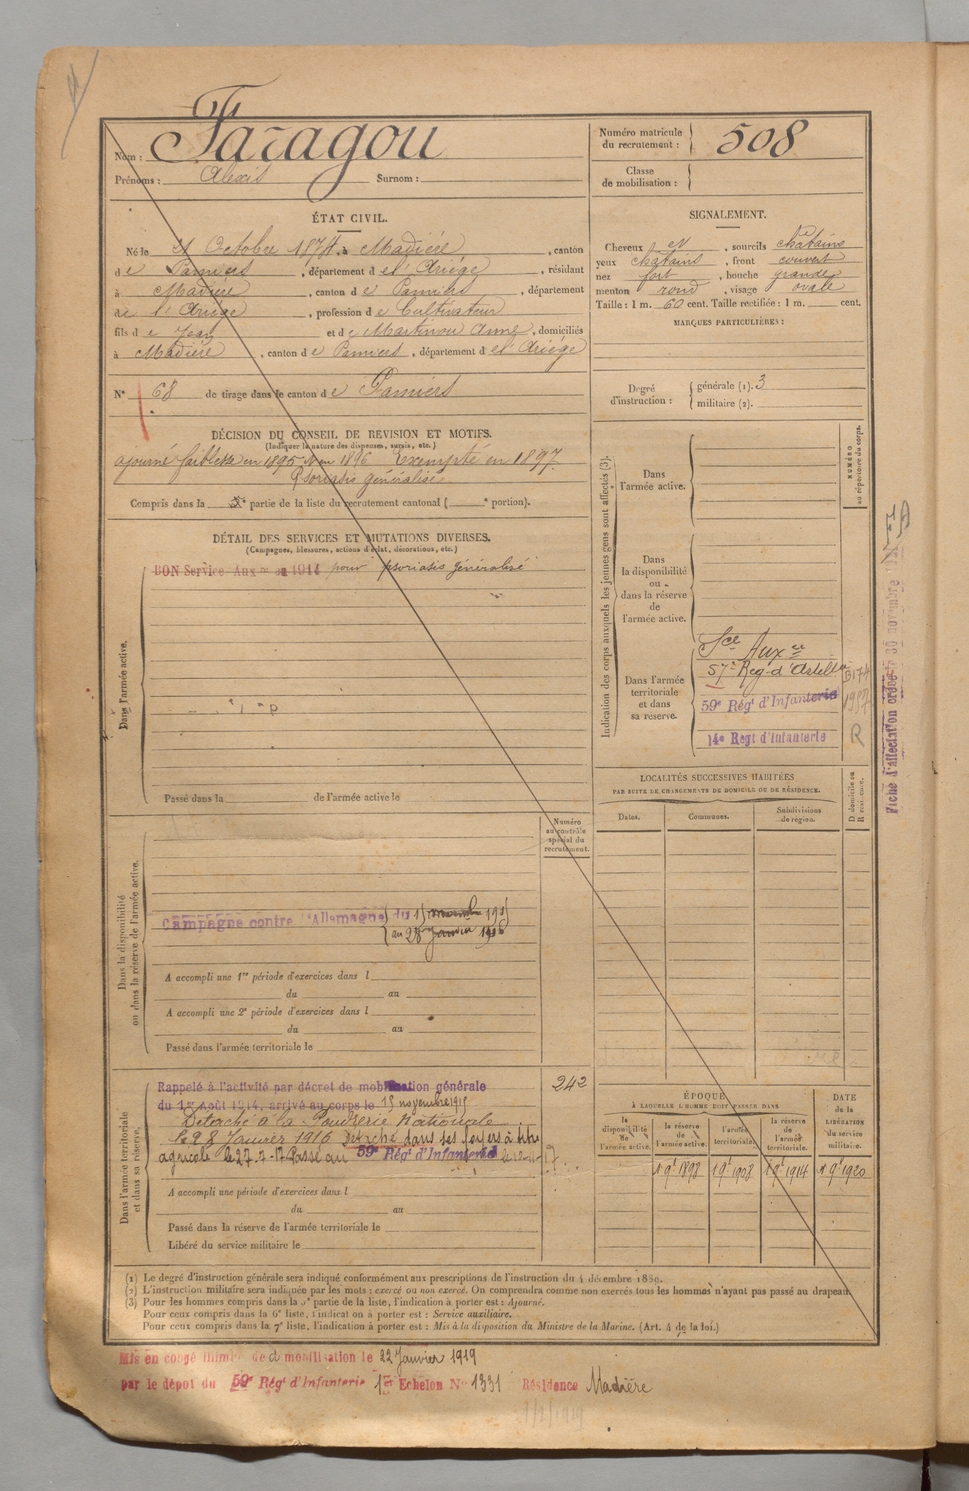 Faragou
Nom :
Prénoms : Alexis Surnom :
Numéro matricule
du recrutement : 508
Classe
de mobilisation :
ÉTAT CIVIL.
Né le Octobre 1874, à Madière, canton
de Pamiers, département de l'Ariège, résidant
à Madière, canton de Pamiers, département
de l'Ariège, profession de Cultivateur
fils de Jean et de Martinou Anne, domiciliés
à Madière, canton de Pamiers, département de l'Ariège
N° 68 de tirage dans le canton de Pamiers
SIGNALEMENT.
Cheveux et, sourcils châtains
yeux châtains, front couvert
nez fort, bouche grande
menton rond, visage ovale
Taille : 1 m. 60 cent. Taille rectifiée : 1 m. cent.
MARQUES PARTICULIÈRES :
Degré
d'instruction :
générale (1). 3
militaire (2).
DÉCISION DU CONSEIL DE REVISION ET MOTIFS.
(Indiquer la nature des dispenses, sursis, etc.)
ajourné faiblesse en 1895 et en 1896 Exempté en 1897
Psoriasis généralisé
Compris dans la 5e partie de la liste du recrutement cantonal ( e portion).
DÉTAIL DES SERVICES ET MUTATIONS DIVERSES.
(Campagnes, blessures, actions d'éclat, décorations, etc.)
Dans l'armée active.
BON Service Auxre en 1914 pour psoriasis généralisé
Passé dans la de l'armée active le
Indication des corps auxquels les jeunes gens sont affectés (3).
NUMÉRO
au répertoire du corps.
Dans
l'armée active.
Dans
la disponibilité
ou
dans la réserve
de
l'armée active.
Dans l'armée
territoriale
et dans
sa réserve.
Sce Auxre
57e Reg d'Artillie
59e Régt d'Infanterie
14e Régt d'Infanterie
R
Fiche d'affectation
LOCALITÉS SUCCESSIVES HABITÉES
PAR SUITE DE CHANGEMENTS DE DOMICILE OU DE RÉSIDENCE.
Dates. Communes. Subdivisions
de région.
D domicile ou
R résidence.
Numéro
au contrôle
spécial du
recrutement.
Dans la disponibilité
ou dans la réserve de l'armée active.
Campagne contre l'Allemagne
au 28 Janvier 1916
A accompli une 1re période d'exercices dans l
du au
A accompli une 2e période d'exercices dans l
du au
Passé dans l'armée territoriale le
Dans l'armée territoriale
et dans sa réserve.
Rappelé à l'activité par décret de mobilisation générale
du 1er Août 1914, arrivé au corps le 15 novembre 1915
242
Détaché à la Poudrerie Nationale
le 28 Janvier 1916 Détaché dans ses foyers à titre
agricole le 27-7-17 Passé au 59e Régt d'Infanterie
A accompli une période d'exercices dans l
du au
Passé dans la réserve de l'armée territoriale le
Libéré du service militaire le
ÉPOQUE
À LAQUELLE L'HOMME DOIT PASSER DANS
la
disponibilité
de
l'armée active.
la réserve
de
l'armée active.
l'armée
territoriale.
la réserve
de
l'armée
territoriale.
DATE
de la
LIBÉRATION
du service
militaire.
1 9e 1898 1 9e 1908 1 9e 1914 1 9e 1920
(1) Le degré d'instruction générale sera indiqué conformément aux prescriptions de l'instruction du 4 décembre 1889.
(2) L'instruction militaire sera indiquée par les mots : exercé ou non exercé. On comprendra comme non exercés tous les hommes n'ayant pas passé au drapeau.
(3) Pour les hommes compris dans la 5e partie de la liste, l'indication à porter est : Ajourné.
Pour ceux compris dans la 6e liste, l'indication à porter est : Service auxiliaire.
Pour ceux compris dans la 7e liste, l'indication à porter est : Mis à la disposition du Ministre de la Marine. (Art. 4 de la loi.)
Mis en congé illimité de démobilisation le 22 Janvier 1919
par le dépôt du 59e Régt d'Infanterie 1er Echelon N° 1331 Résidence Madière